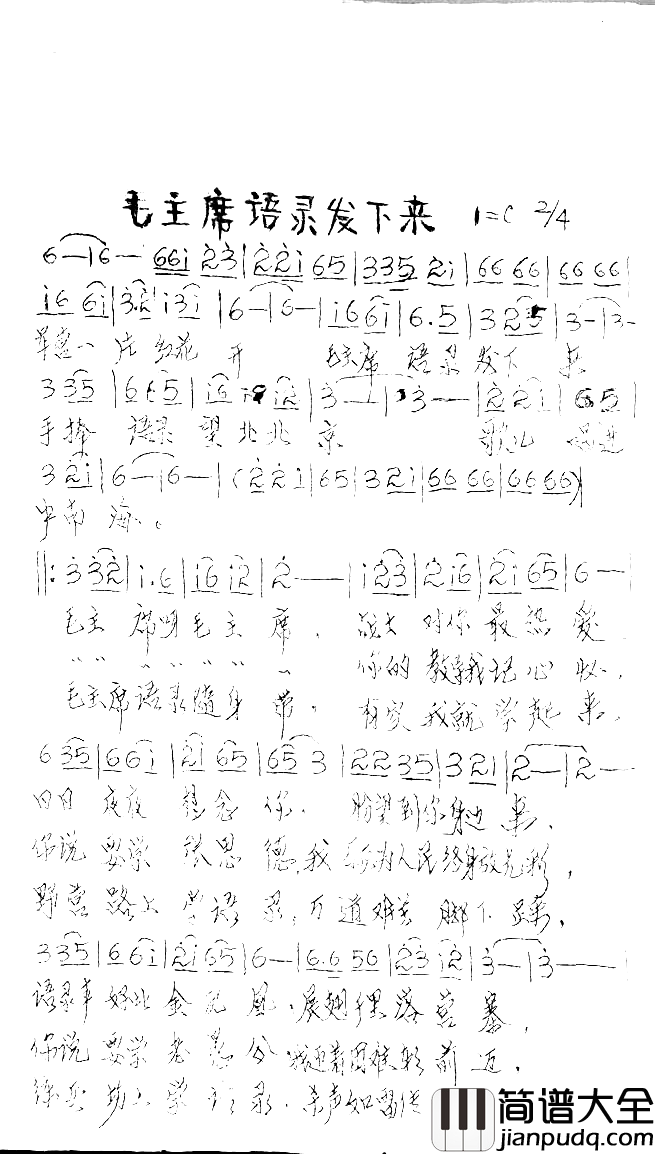 毛主席语录发下来 1=C 2/4
6—|6—|66i 23|22i 65|335 2i|66 66|66 66|
i6 6i|3.2 i3i|6—|6—|i6 6i|6.5|3 25|3—|3—
一片红花开 毛主席 语录发下来
3 35|665|i6 i2|3—|3—|22i|65|
手捧语录望北北京 歌儿唱进
3 2i|6—|6—|(22i|65|3 2i|66 66|66 66)|
中南海。
||:3 32|i.6|i6 i2|2—|i 23|2 i6|2i 65|6—|
毛主席呀毛主席, 战士对你最热爱
〃〃〃〃〃〃 你的教导我记心怀,
毛主席语录随身带, 有空我就学起来,
6 35|66i|2i 65|65 3|22 35|3 2i|2—|2—
日日夜夜想念你, 盼望到你身边来,
你说要学张思德,我为人民终身放光彩,
野营路上学语录,万道难关脚下踩,
3 35|66i|2i 65|6—|6.6 56|23 i2|3—|3—
语录本好比金凤凰,展翅落营寨,
你说要学老愚公 我迎着困难朝前迈,
练兵场上学语录,杀声如雷
简谱大全
jianpudq.com